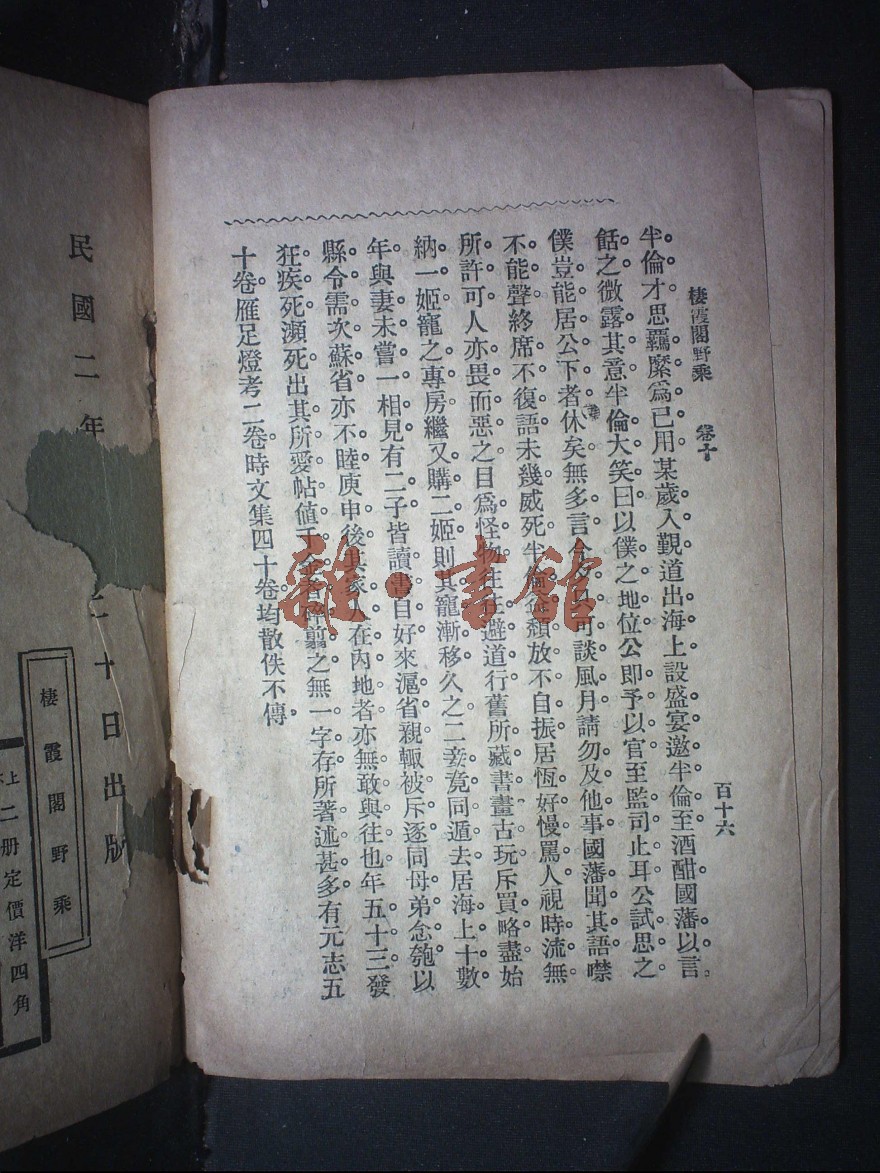 棲霞閣野乘　卷下　百十六
半倫才思羈縻爲己用某歲入覲道出海上設盛宴邀半倫至酒酣國藩以言
餂之微露其意半倫大笑曰以僕之地位公即予以官至監司止耳公試思之
僕豈能居公下者休矣無多言今夕只可談風月請勿及他事國藩聞其語噤
不能聲終席不復語未幾威死半倫益頹放不自振居恆好慢罵人視時流無
所許可人亦畏而惡之目爲怪物往往避道行舊所藏書畫古玩斥買略盡始
納一姬寵之專房繼又購二姬則其寵漸移久之二妾竟同遁去居海上十數
年與妻未嘗一相見有二子皆讀書自好來滬省親輒被斥逐同母弟念匏以
縣令需次蘇省亦不睦庚申後其家人在內地者亦無敢與往也年五十三發
狂疾死瀕死出其所愛帖値千金者碎翦之無一字存所著述甚多有元志五
十卷雁足燈考二卷時文集四十卷均散佚不傳
雜·書館
民國二年
二十日出版
棲霞閣野乘
上
二册定價洋四角